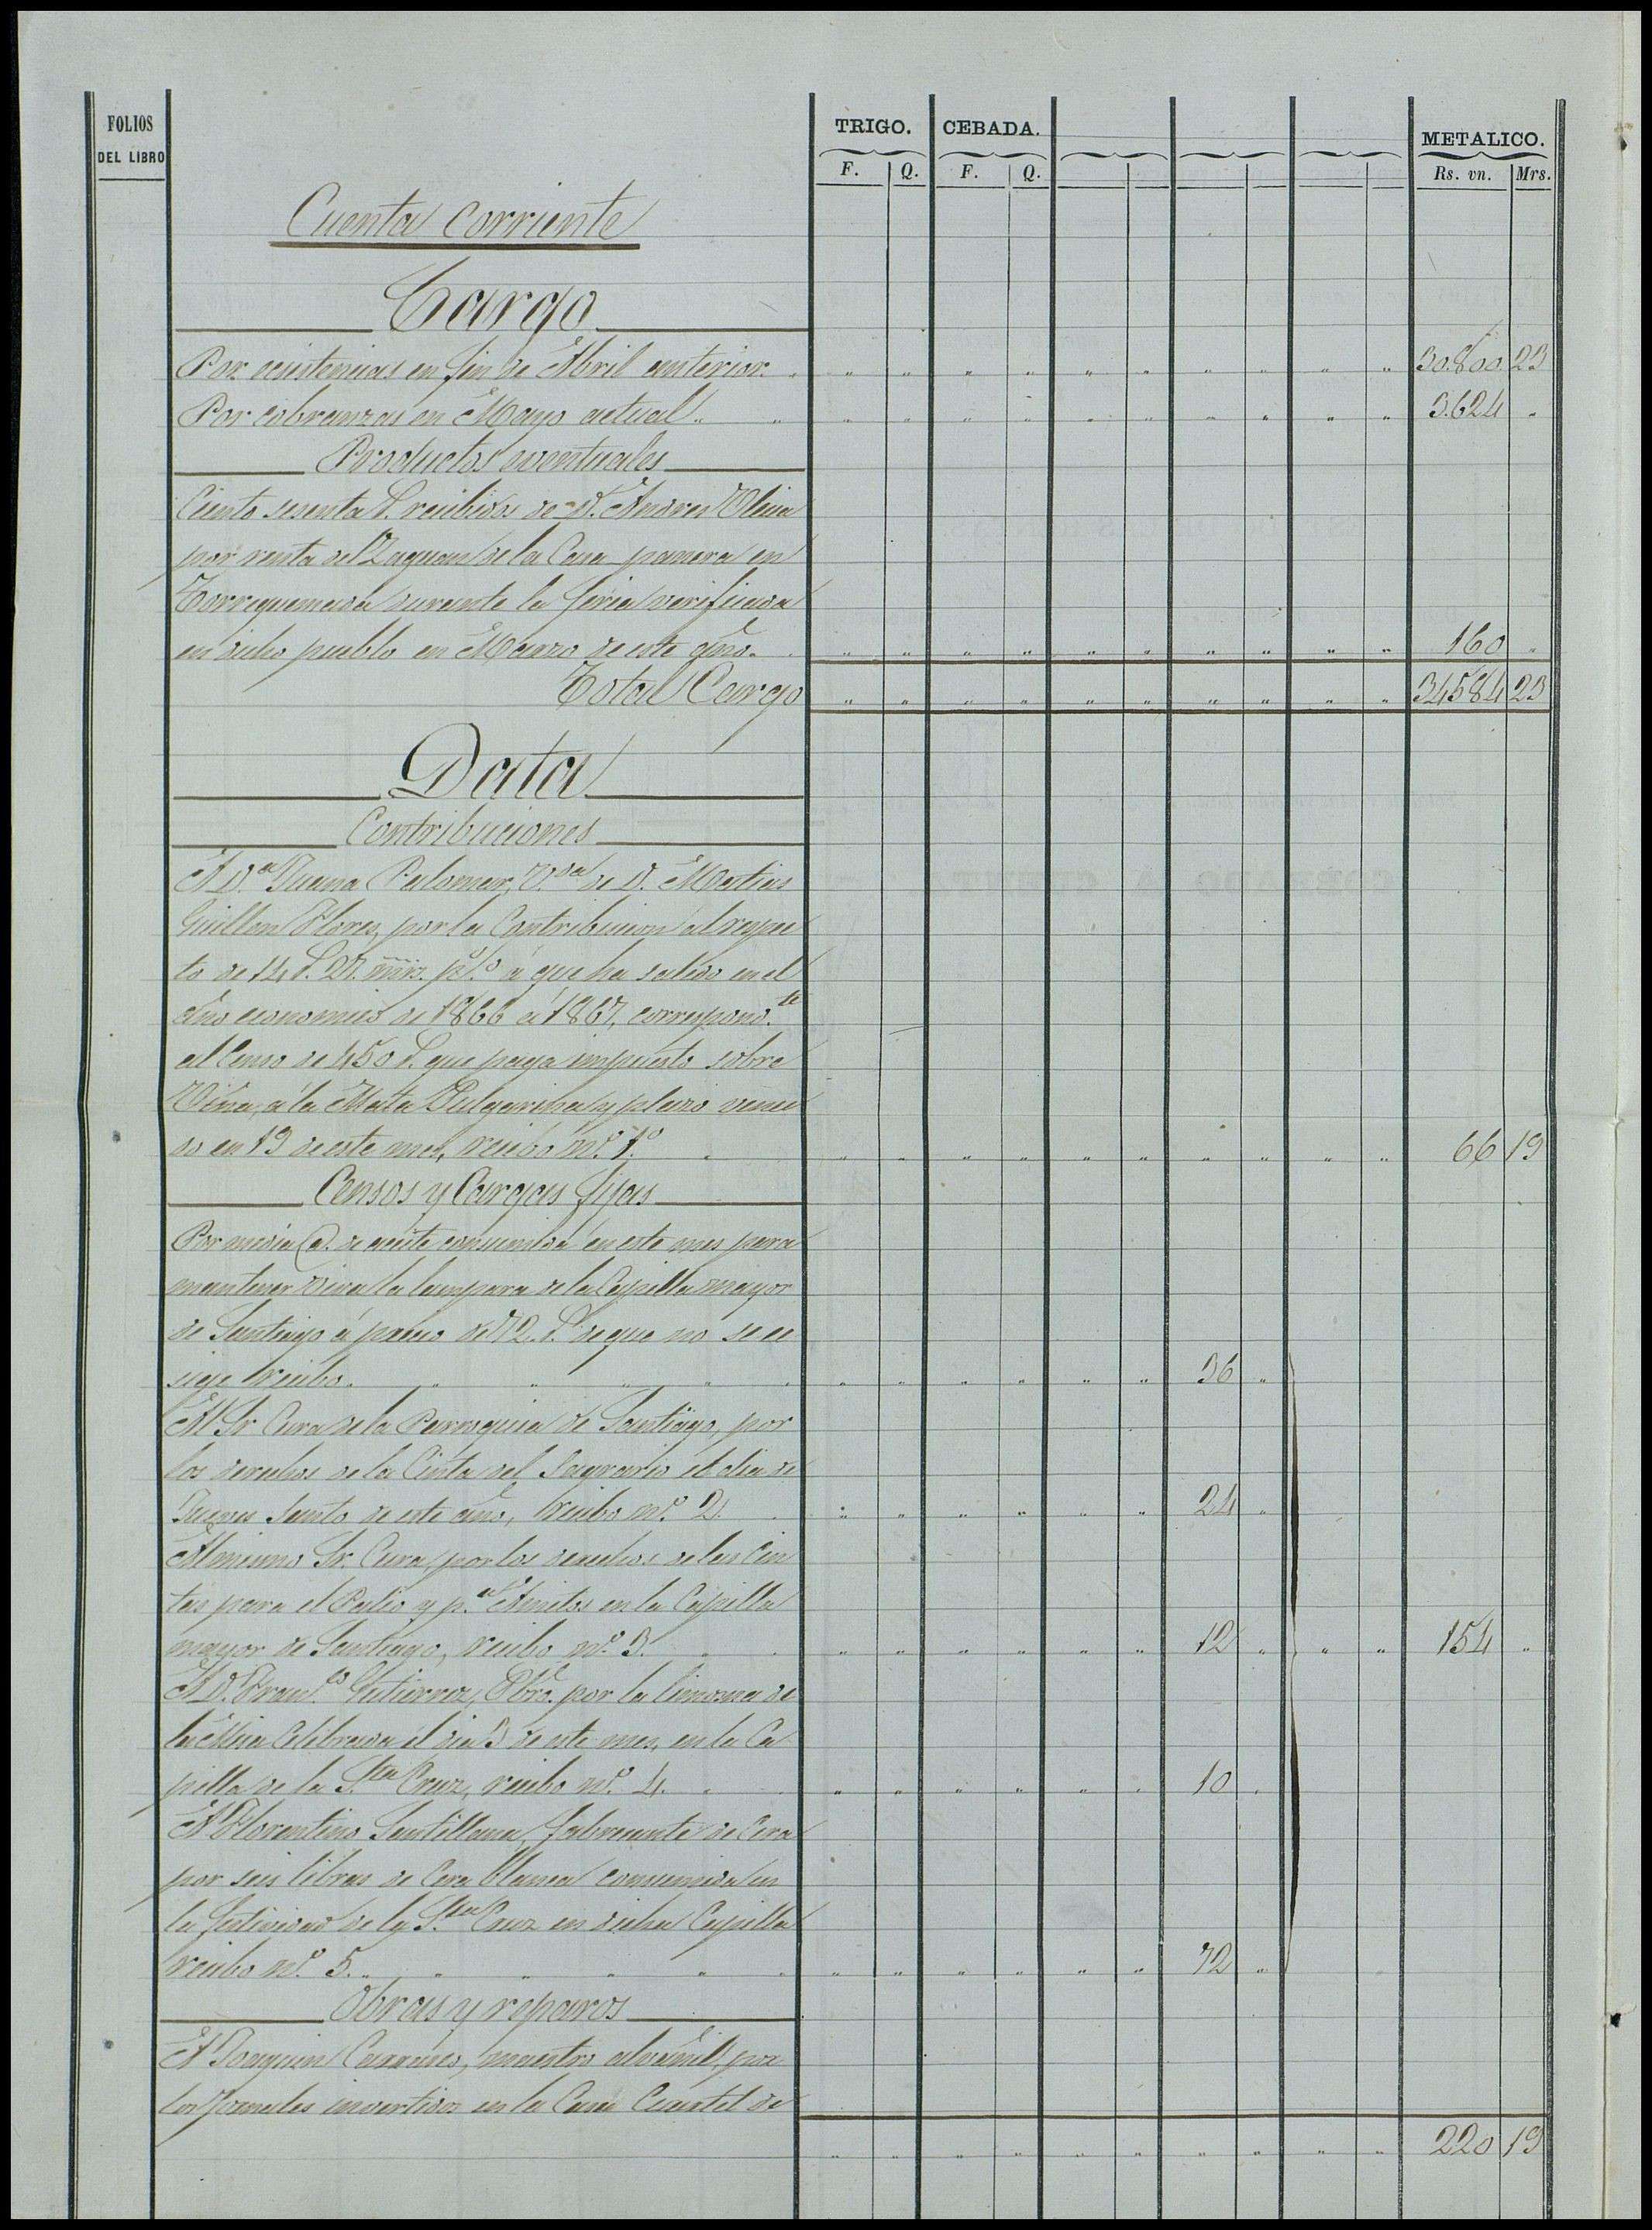 FOLIOS
DEL LIBRO
TRIGO. CEBADA. METALICO.
F. Q. F. Q. Rs. vn. Mrs.
Cuenta corriente
Cargo
Por existencias en fin de Abril anterior. 30.800 23
Por cobranzas en Mayo actual 3.624 "
Productos eventuales
Ciento sesenta r. recibidos de D. Andres
por renta del Zaguan de la Casa panera en
Torrequemada durante la feria verificada
en dicho pueblo en Marzo de este año. 160 "
Total Cargo 34584 23
Data
Contribuciones
A D.ª Juana Palomar, V.da de D. Matias
Guillen Flores, por la Contribucion al respec
to de 14 r. 27 mrs. p% á que ha salido en el
año economico de 1866 á 1867, correspond.te
al Censo de 450 r. que paga impuesto sobre
Viña, á la Mata Pulgarina y plazo venci
do en 13 de este mes, recibo n.º 1.º 66 19
Censos y Cargas fijas
Por media @. de aceite consumida en este mes para
mantener viva la lampara de la Capilla mayor
de Santiago á precio de 72 r. de que no se ec
sige recibo. 36 "
Al Sr. Cura de la Parroquia de Santiago, por
los derechos de la Cinta del Sagrario el dia de
Jueves Santo de este año, recibo n.º 2. 24 "
Al mismo Sr. Cura, por los derechos de las Cin
tas para el Palio y p.ª en la Capilla
mayor de Santiago, recibo n.º 3. 12 " 154 "
A D. Fran.co Gutierrez, Pbro. por la limosna de
la Misa Celebrada el dia 3 de este mes, en la Ca
pilla de la S.ta Cruz, recibo n.º 4. 10 "
A Florentino Santillana, fabricante de Cera
por seis libras de Cera blanca consumida en
la festividad de la S.ta Cruz en dicha Capilla
recibo n.º 5. 72 "
Obras y reparos
A Joaquin maestro alvañil, por
los jornales invertidos en la Casa Cuartel de
220 19